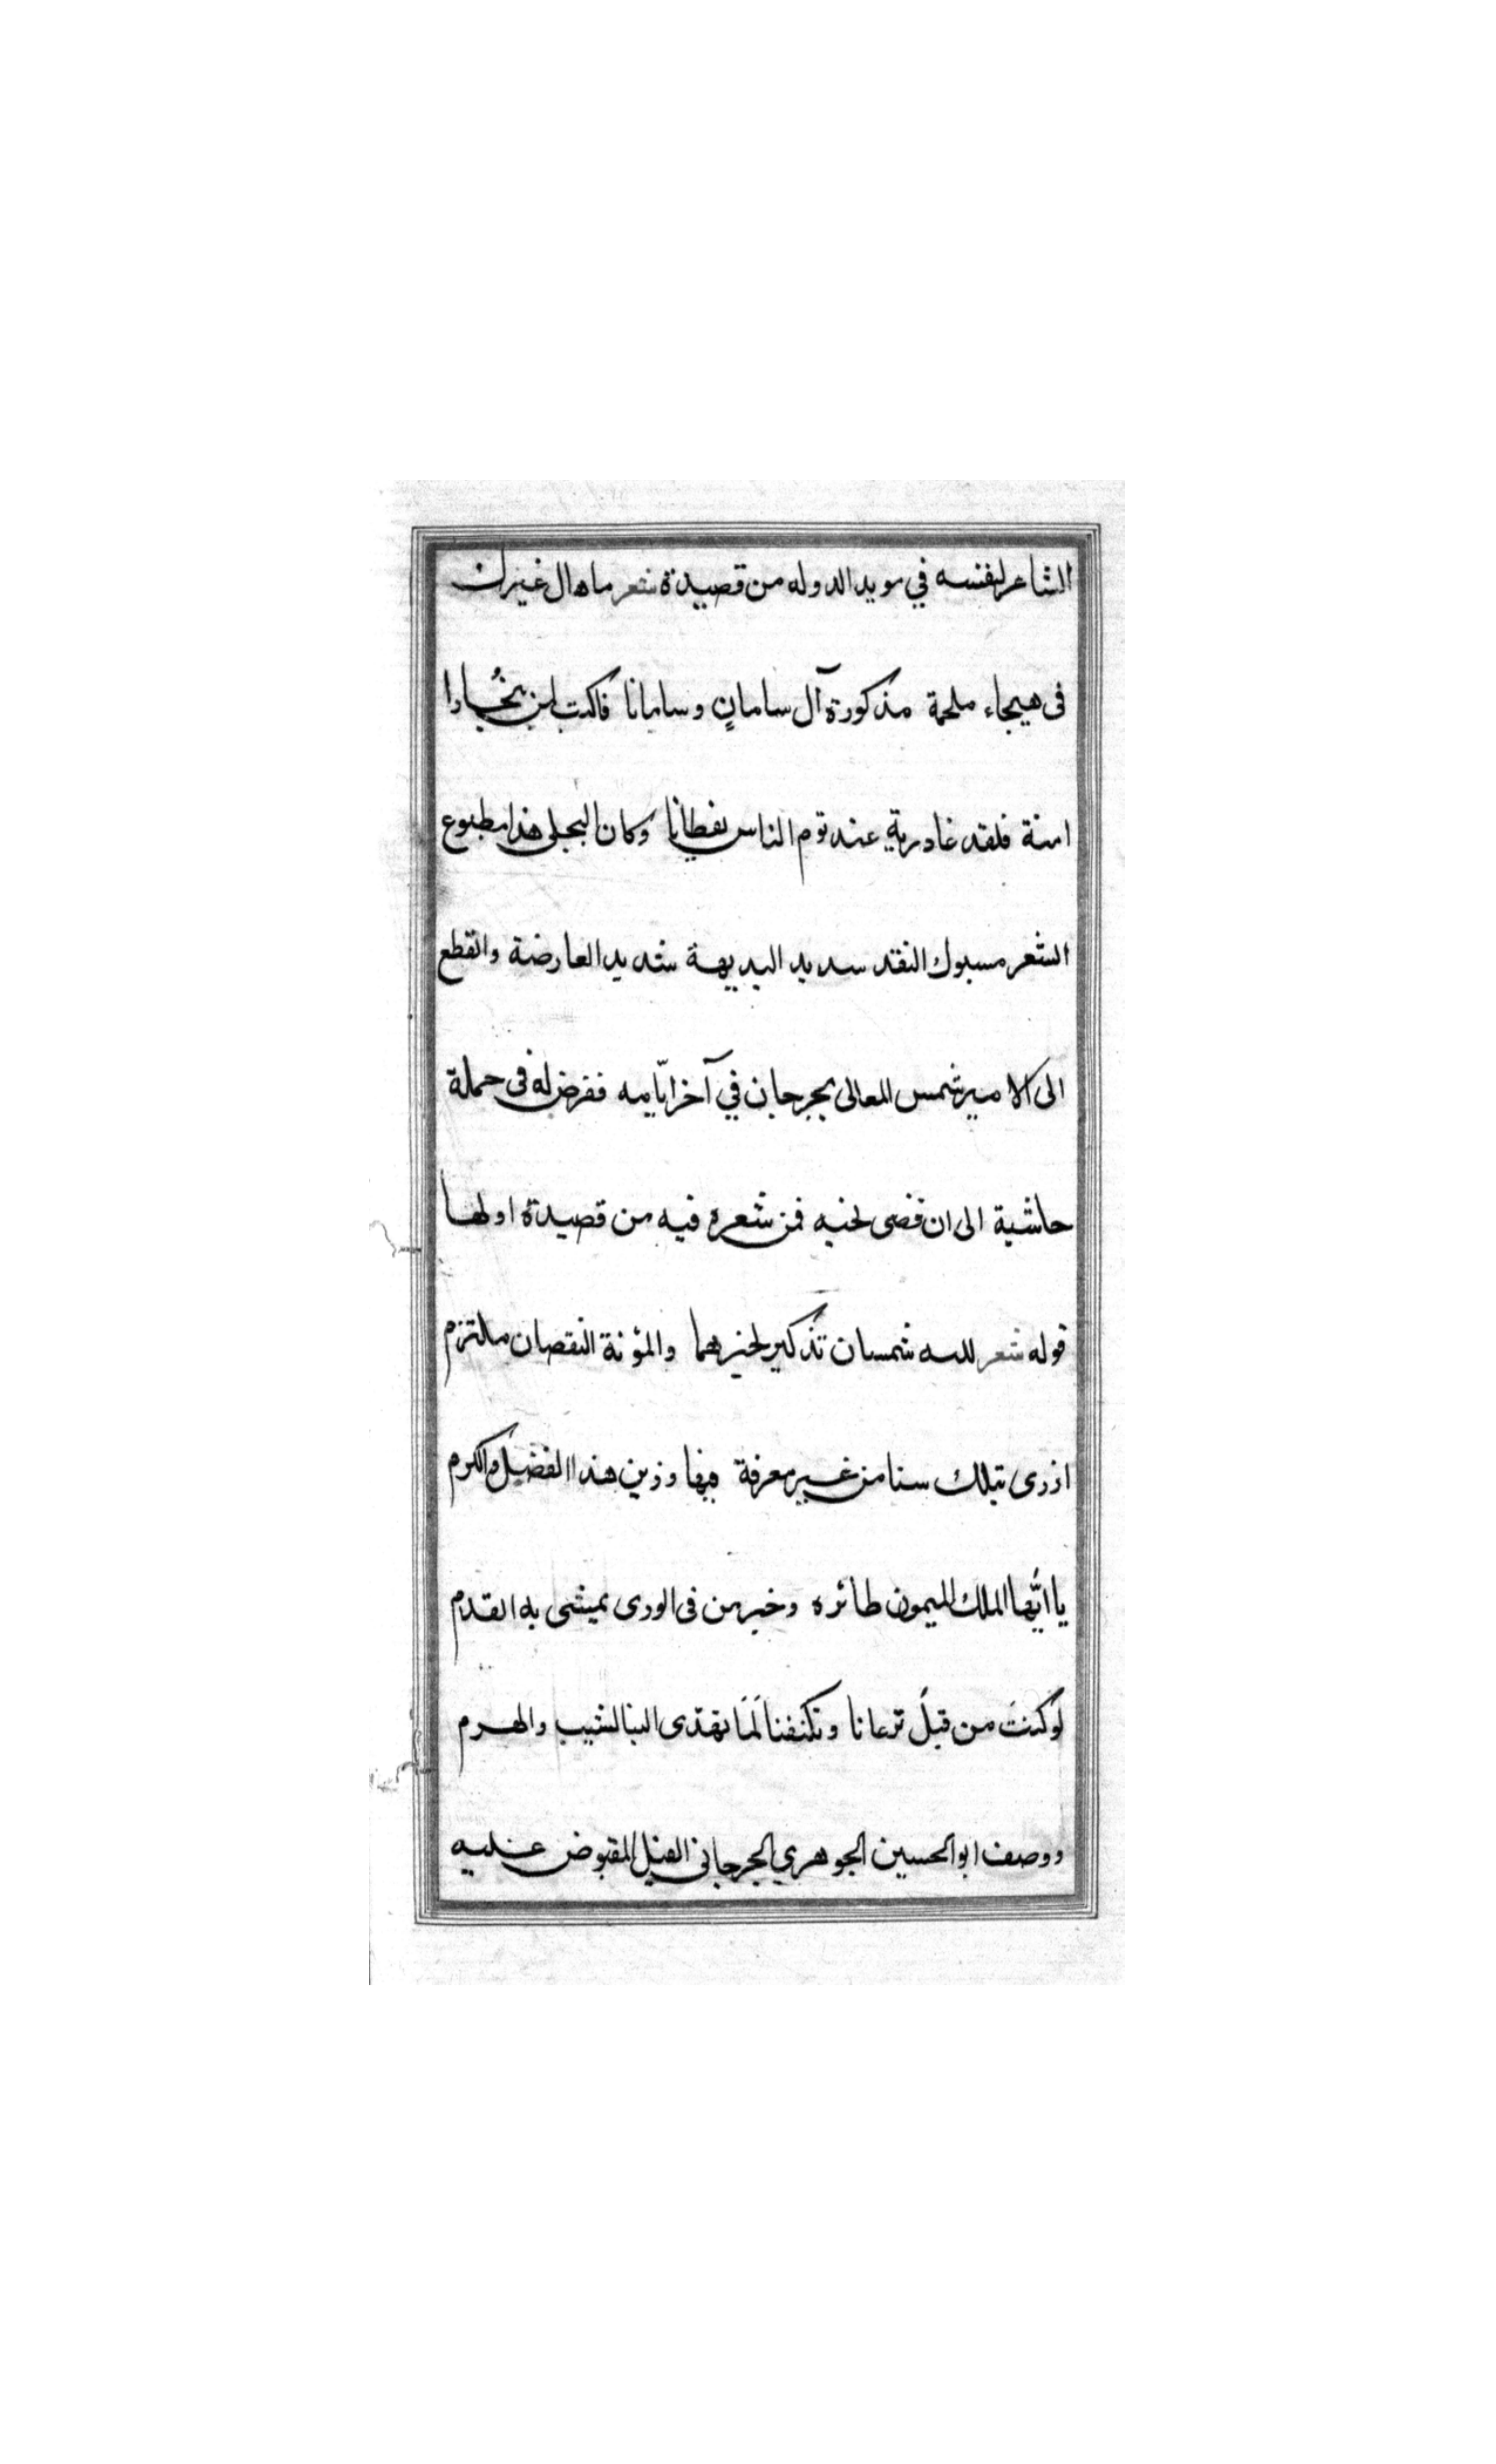 الشاعر لنفسه في مويد الدوله من قصيدة شعر ماهال غيرك
فى هيجاء ملحمة مذكورة آل سامانٍ وسامانا فاكدت لبن بُخارا
امنة فلقد غادرية عند توم الناس يقظانا وكان البجلى هذا مطبوع
الشعر مسبوك النقد سديد البديهة شديد العارضة وانقطع
الى الامير شمس المعالى بجرجان في آخر ايّامه ففرض له فى حملة
حاشية الى ان قضى لحنبه فمن شعره فيه من قصيدة اولها
قوله شعر لله شمسان تذكير لخيرهما والمؤنة النقصان ملتزم
ازرى بتلك سنا من غير معرفة فيها وزين هذا الفضل والكرم
يا ايُّها الملك الميمون طائره وخير من فى الورى يمشى به القدم
لوكنتَ من قبلُ ترعانا وتكنفنا لَمَا تهدّى الينا الشيب والهرم
ووصف ابو الحسين الجوهري الجرجاني الفيل المقبوض عليه